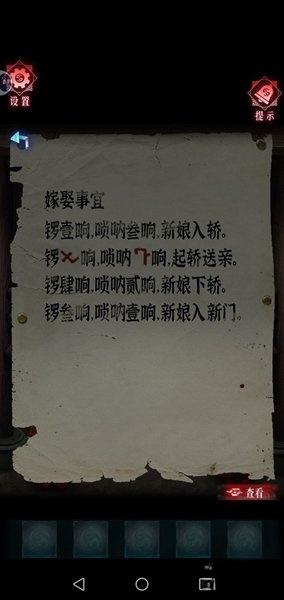 设置
提示
嫁娶事宜
锣壹响,唢呐叁响,新娘入轿。
锣〤响,唢呐〧响,起轿送亲。
锣肆响,唢呐贰响,新娘下轿。
锣叁响,唢呐壹响,新娘入新门。
查看